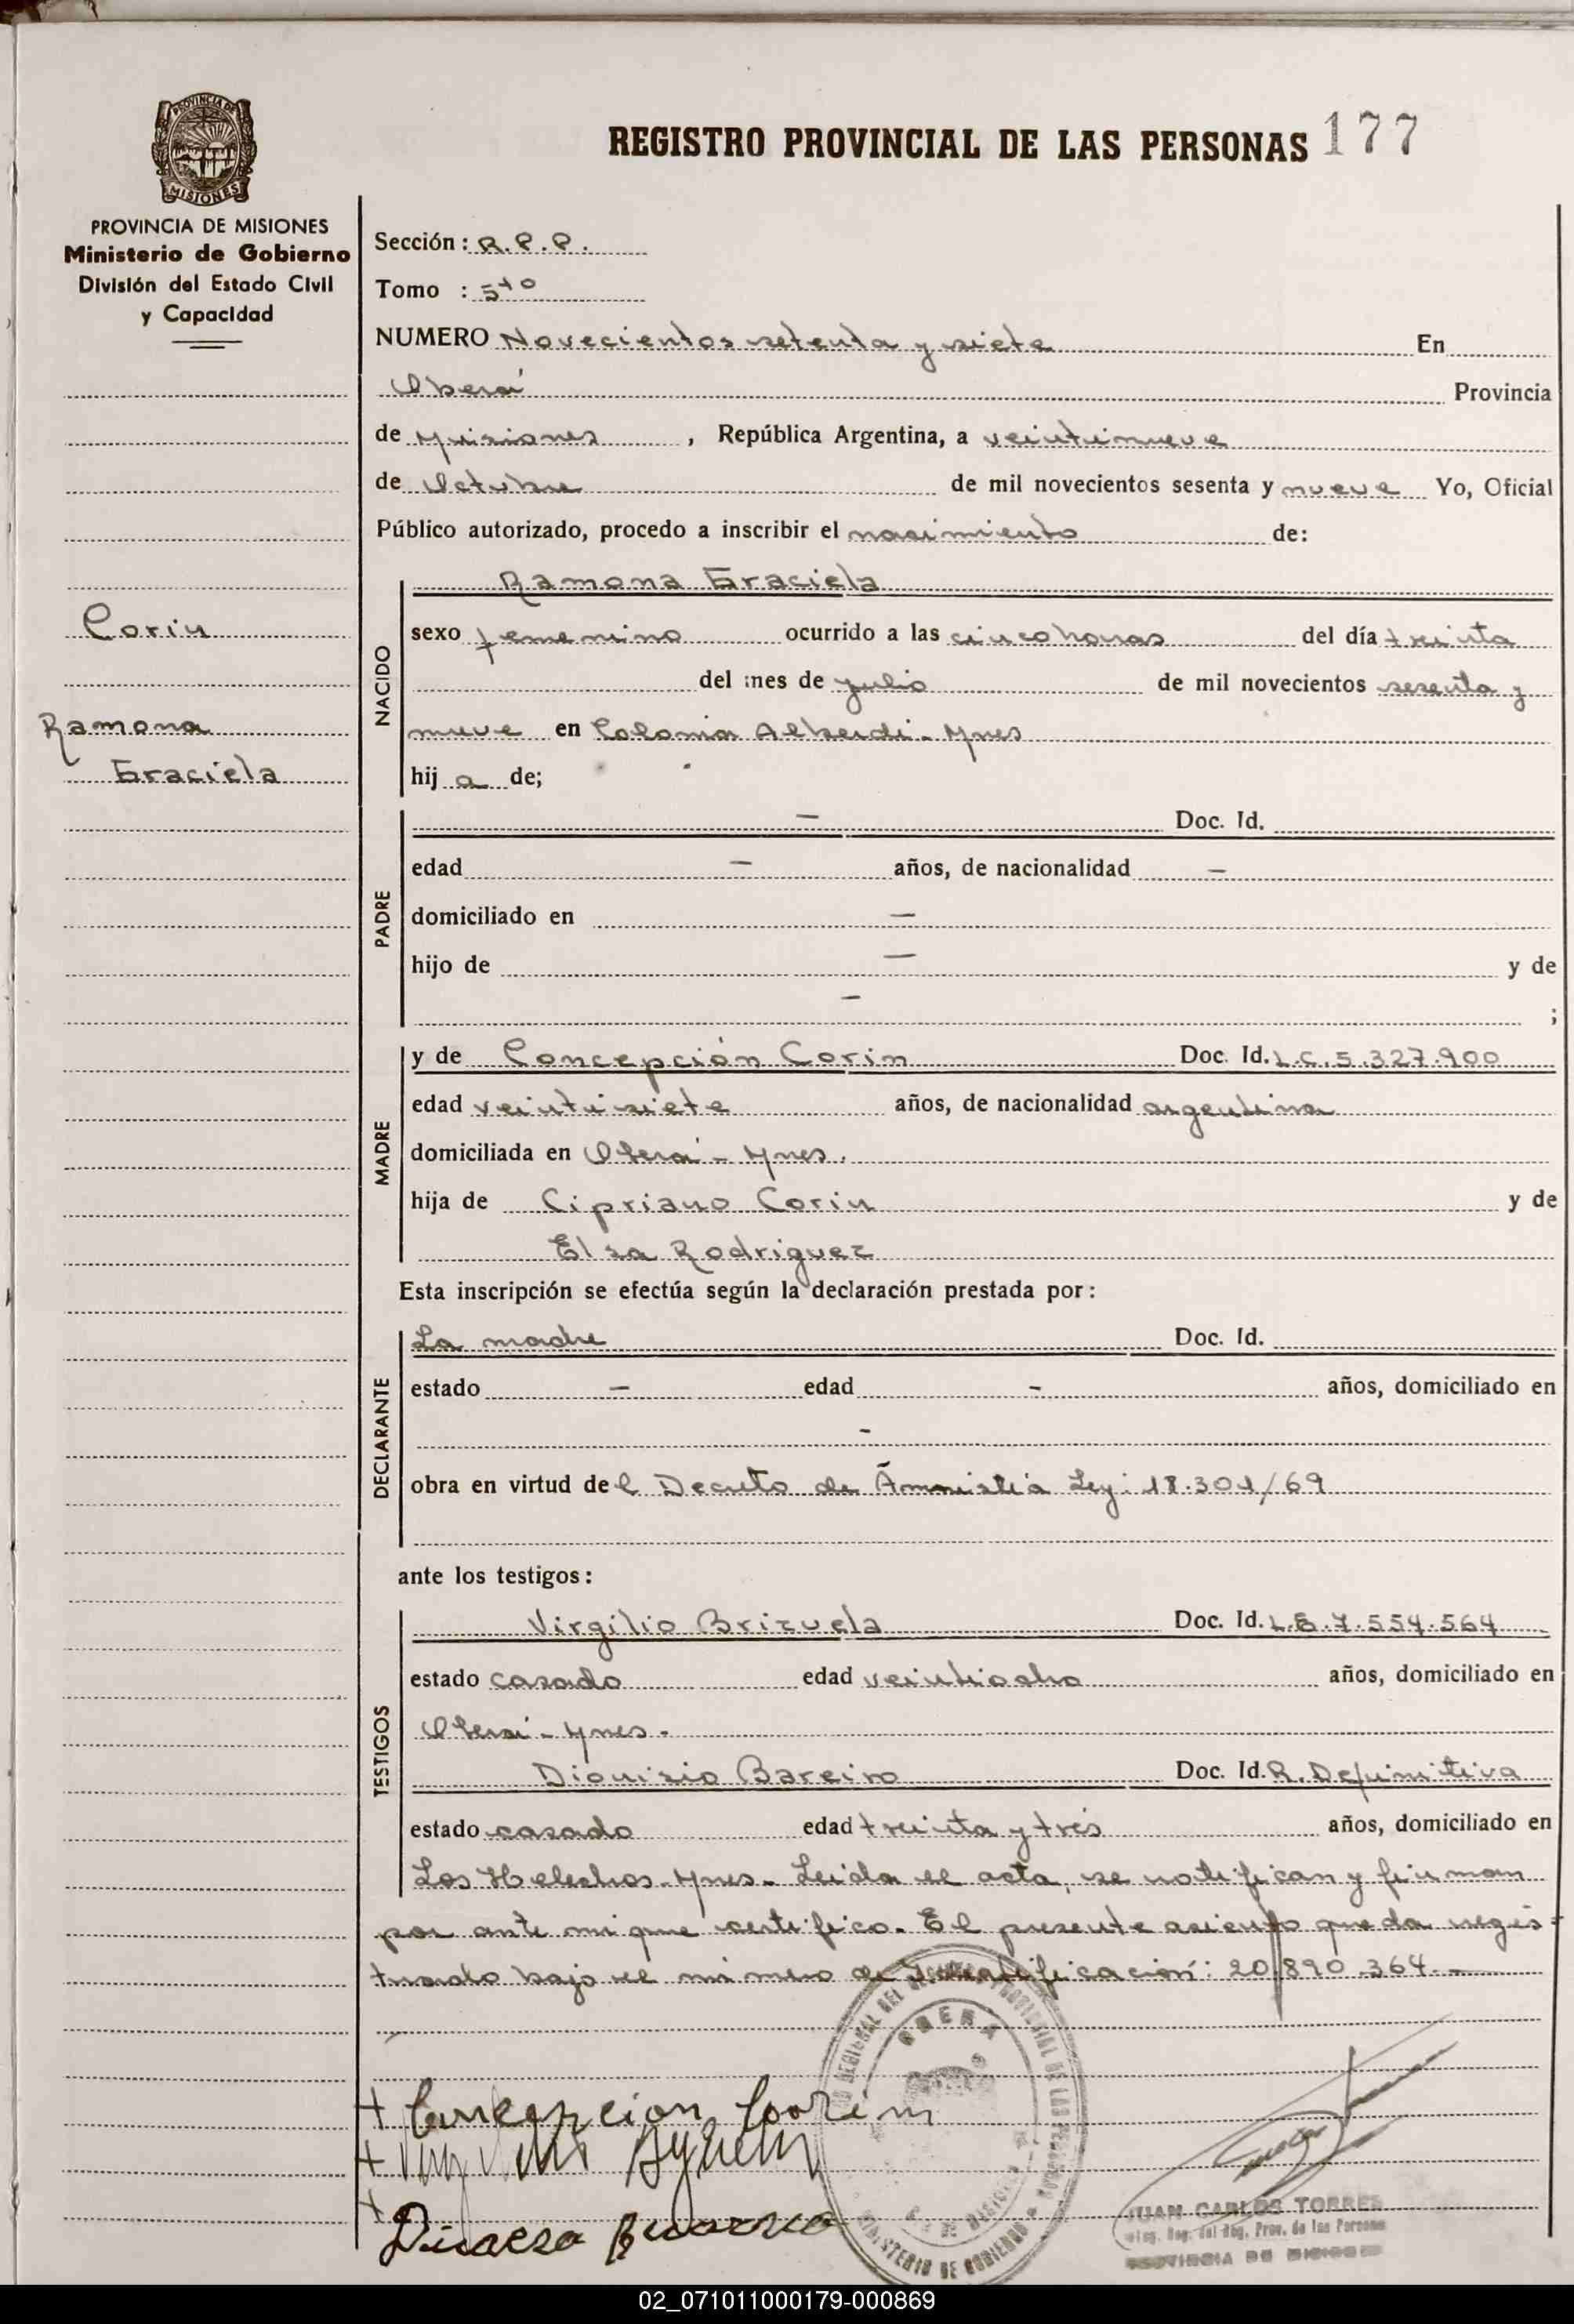 REGISTRO PROVINCIAL DE LAS PERSONAS 177
PROVINCIA DE MISIONES
MISIONES
PROVINCIA DE MISIONES
Ministerio de Gobierno
División del Estado Civil
y Capacidad
Corin
Ramona
Graciela
Sección: R.P.P.
Tomo : 5to
NUMERO Novecientos setenta y siete En
Oberá Provincia
de Misiones, República Argentina, a veintinueve
de Octubre de mil novecientos sesenta y nueve Yo, Oficial
Público autorizado, procedo a inscribir el nacimiento de:
NACIDO
Ramona Graciela
sexo femenino ocurrido a las cinco horas del día treinta
del mes de julio de mil novecientos sesenta y
nueve en Colonia Alberdi - Mnes
hij a de;
PADRE
— Doc. Id.
edad — años, de nacionalidad —
domiciliado en —
hijo de — y de
— ;
MADRE
y de Concepción Corin Doc. Id. L.C. 5.327.900
edad veintisiete años, de nacionalidad argentina
domiciliada en Oberá - Mnes.
hija de Cipriano Corin y de
Elsa Rodriguez
Esta inscripción se efectúa según la declaración prestada por:
DECLARANTE
La madre Doc. Id.
estado — edad - años, domiciliado en
-
obra en virtud de l Decreto de Amnistia Ley: 18.301/69
ante los testigos:
TESTIGOS
Virgilio Brizuela Doc. Id. L.E. 7.554.564
estado casado edad veintiocho años, domiciliado en
Oberá - Mnes -
Dionisio Bareiro Doc. Id. R. Definitiva
estado casado edad treinta y tres años, domiciliado en
Los Helechos - Mnes - Leida el acta, se notifican y firman
por ante mi que certifico. El presente asiento queda regis-
trado bajo el número de Identificación: 20.890.364 —
OBERA
MINISTERIO DE GOBIERNO
+ Concepcion Coorin
JUAN CARLOS TORRES
Reg. Prov. de las Persona
PROVINCIA DE MISIONES
02_071011000179-000869